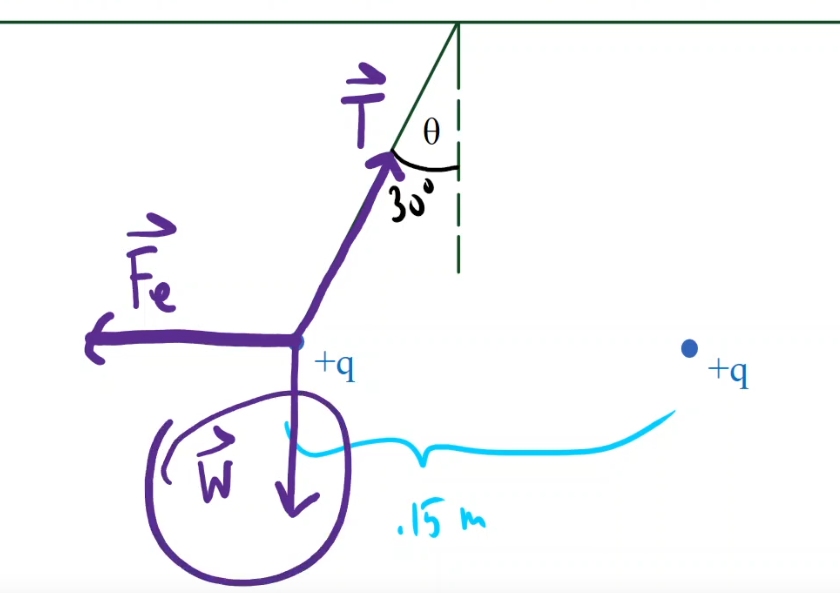 T
θ
30°
Fe
+q
+q
W
.15 m